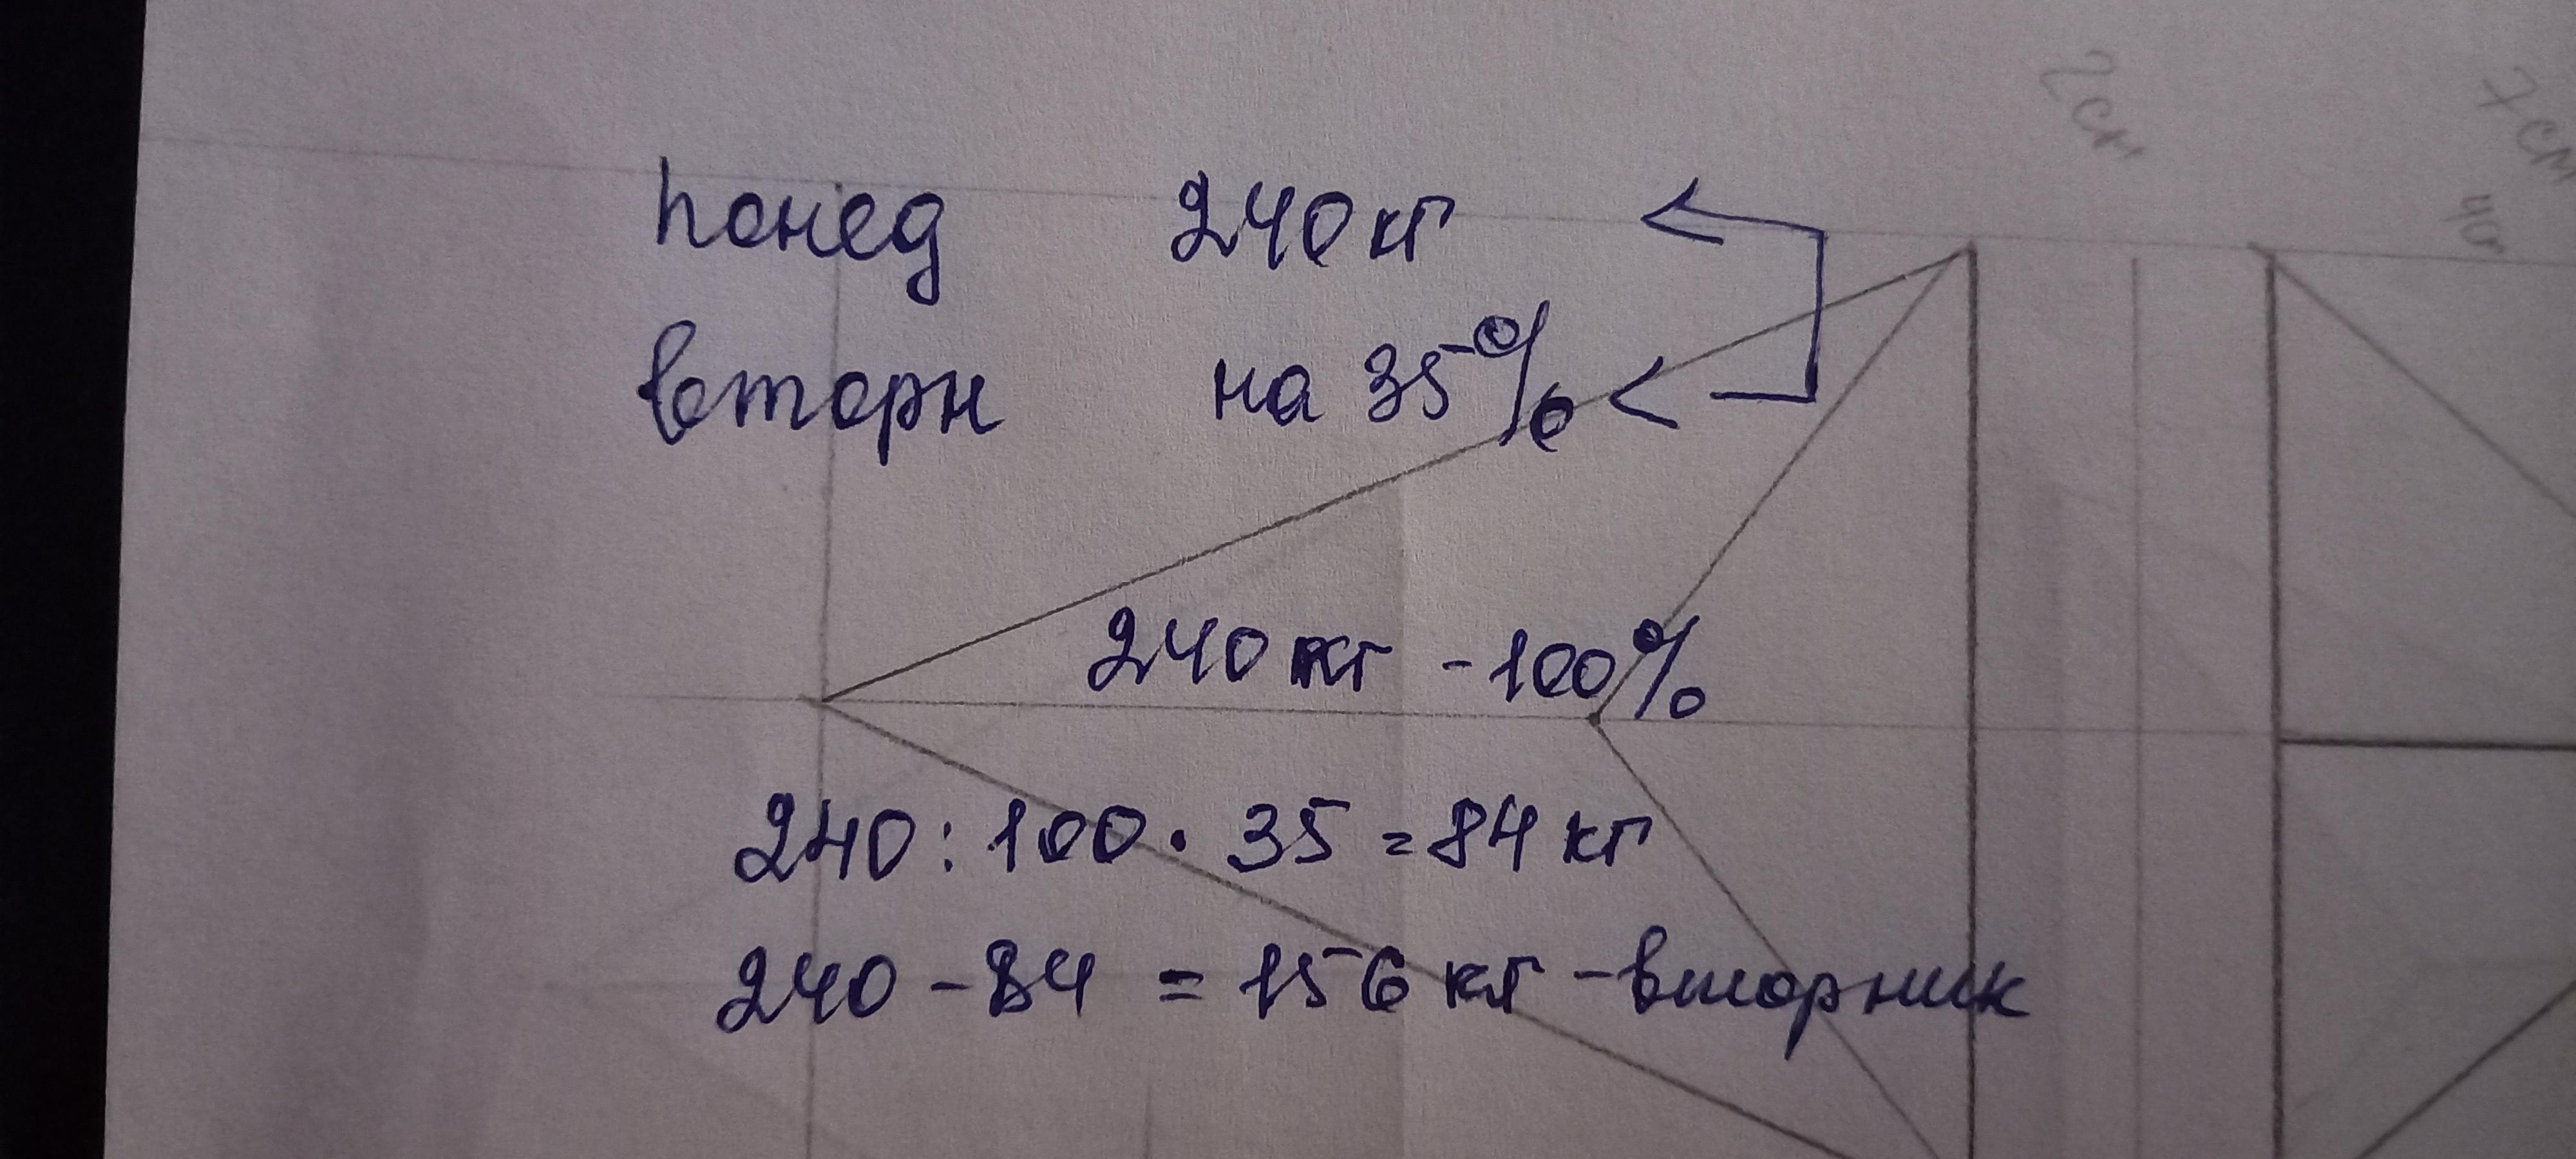 понед 240 кг
вторн на 35% <
240 кг - 100%
240 : 100 · 35 = 84 кг
240 - 84 = 156 кг - вторник
7 см
7 см